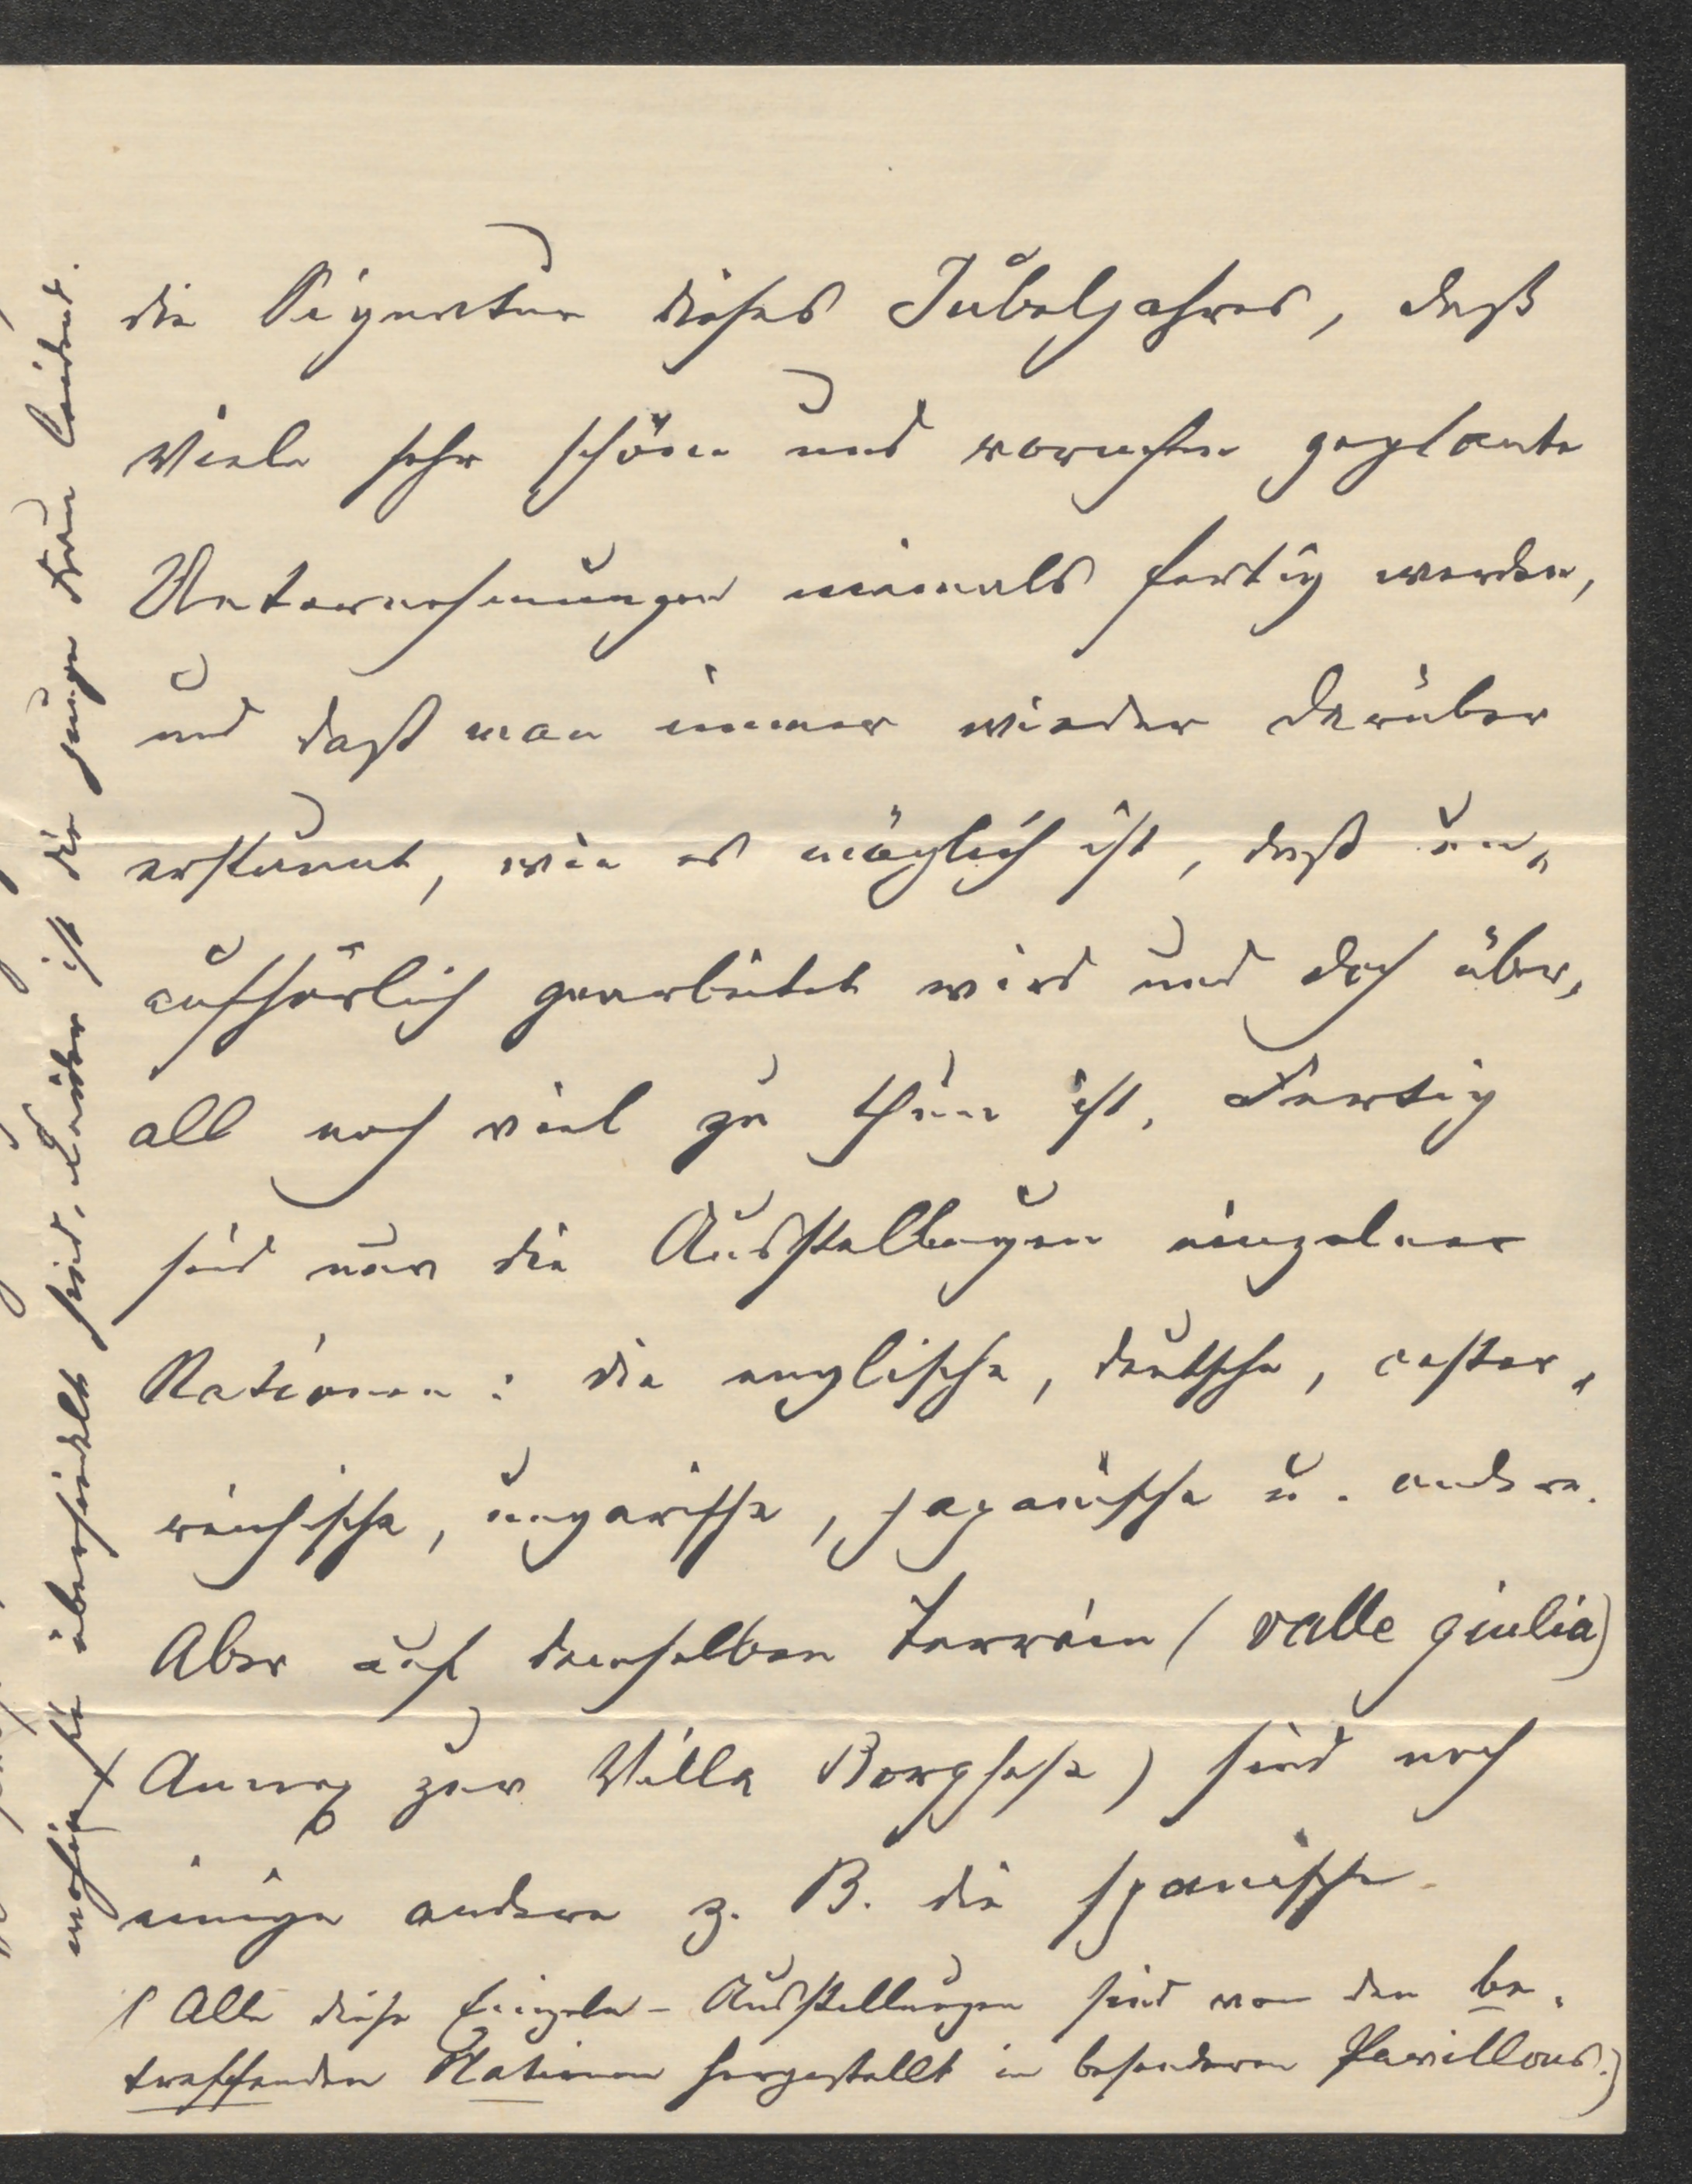 die Signatur dieses Jubeljahres, daß
viele sehr schöne und vornehm geplante
Unternehmungen niemals fertig werden,
und daß man immer wieder darüber
erstaunt, wie es möglich ist, daß un„
aufhörlich gearbeitet wird und doch über„
all noch viel zu thun ist. Fertig
sind nur die Ausstellungen einzelner
Nationen: die englische, deutsche, oester„
reichische, ungarische, japanische u. andere.
Aber auf demselben Terrain (valle giulia)
Anweg zur Villa Borghese) sind noch
einige andere z. B. die spanische
(Alle diese Einzeln-Ausstellungen sind von den be„
treffenden Nationen hergestellt in besonderen Pavillons.)
wohin sie übersiedelt sind. Leider ist die junge Frau leidend.